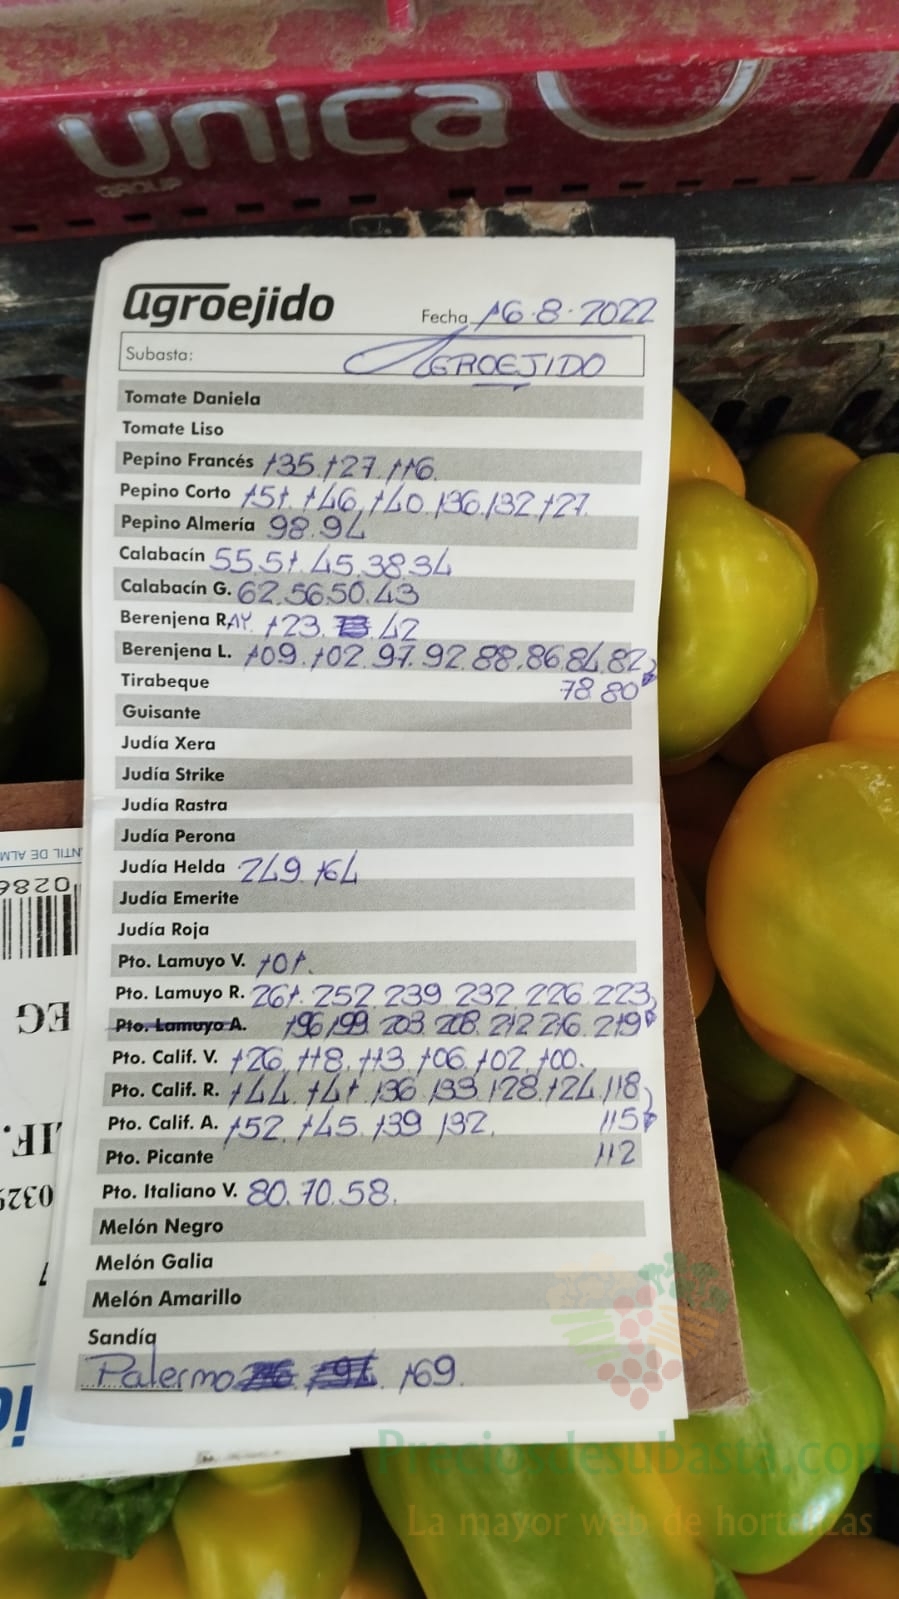 unica
GROUP
agroejido
Fecha 16-8-2022
Subasta: AGROEJIDO
Tomate Daniela
Tomate Liso
Pepino Francés 135.127.116.
Pepino Corto 151. 146. 140. 136. 132. 127.
Pepino Almería 98.94
Calabacín 55.51.45.38.34
Calabacín G. 62.56.50.43
Berenjena RAY. 123. 42
Berenjena L. 109.102.97.92.88.86.84.82,
Tirabeque 78.80
Guisante
Judía Xera
Judía Strike
Judía Rastra
Judía Perona
Judía Helda 249 164
Judía Emerite
Judía Roja
Pto. Lamuyo V. 101.
Pto. Lamuyo R. 261. 252. 239. 232. 226. 223,
Pto. Lamuyo A. 196.199. 203. 208. 212 216. 219
Pto. Calif. V. 126. 118. 113. 106. 102. 100.
Pto. Calif. R. 144. 141. 136. 133. 128. 124. 118,
Pto. Calif. A. 152. 145. 139 132. 115
Pto. Picante 112
Pto. Italiano V. 80.70.58.
Melón Negro
Melón Galia
Melón Amarillo
Sandía
Palermo 169.
NTIL DE ALM
0286
EG
IF.
0329
7
Preciosdesubasta.com
La mayor web de hortalizas